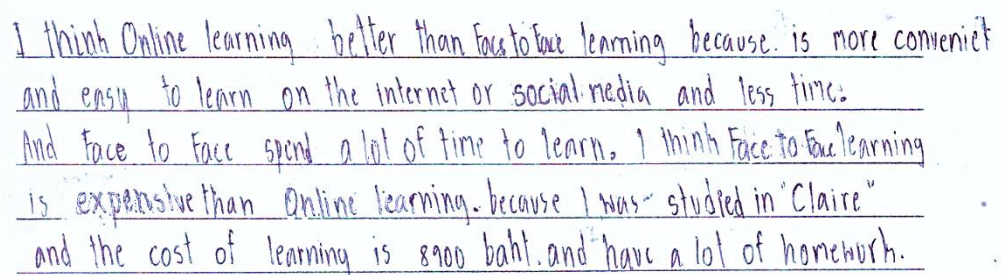 I think Online learning better than Face to Face learning because. is more conveniet
and easy to learn on the internet or social media and less time.
And Face to Face spend a lot of time to learn. I think Face to Face learning
is expensive than Online learning. because I was studied in "Claire"
and the cost of learning is 8900 baht. and have a lot of homework.